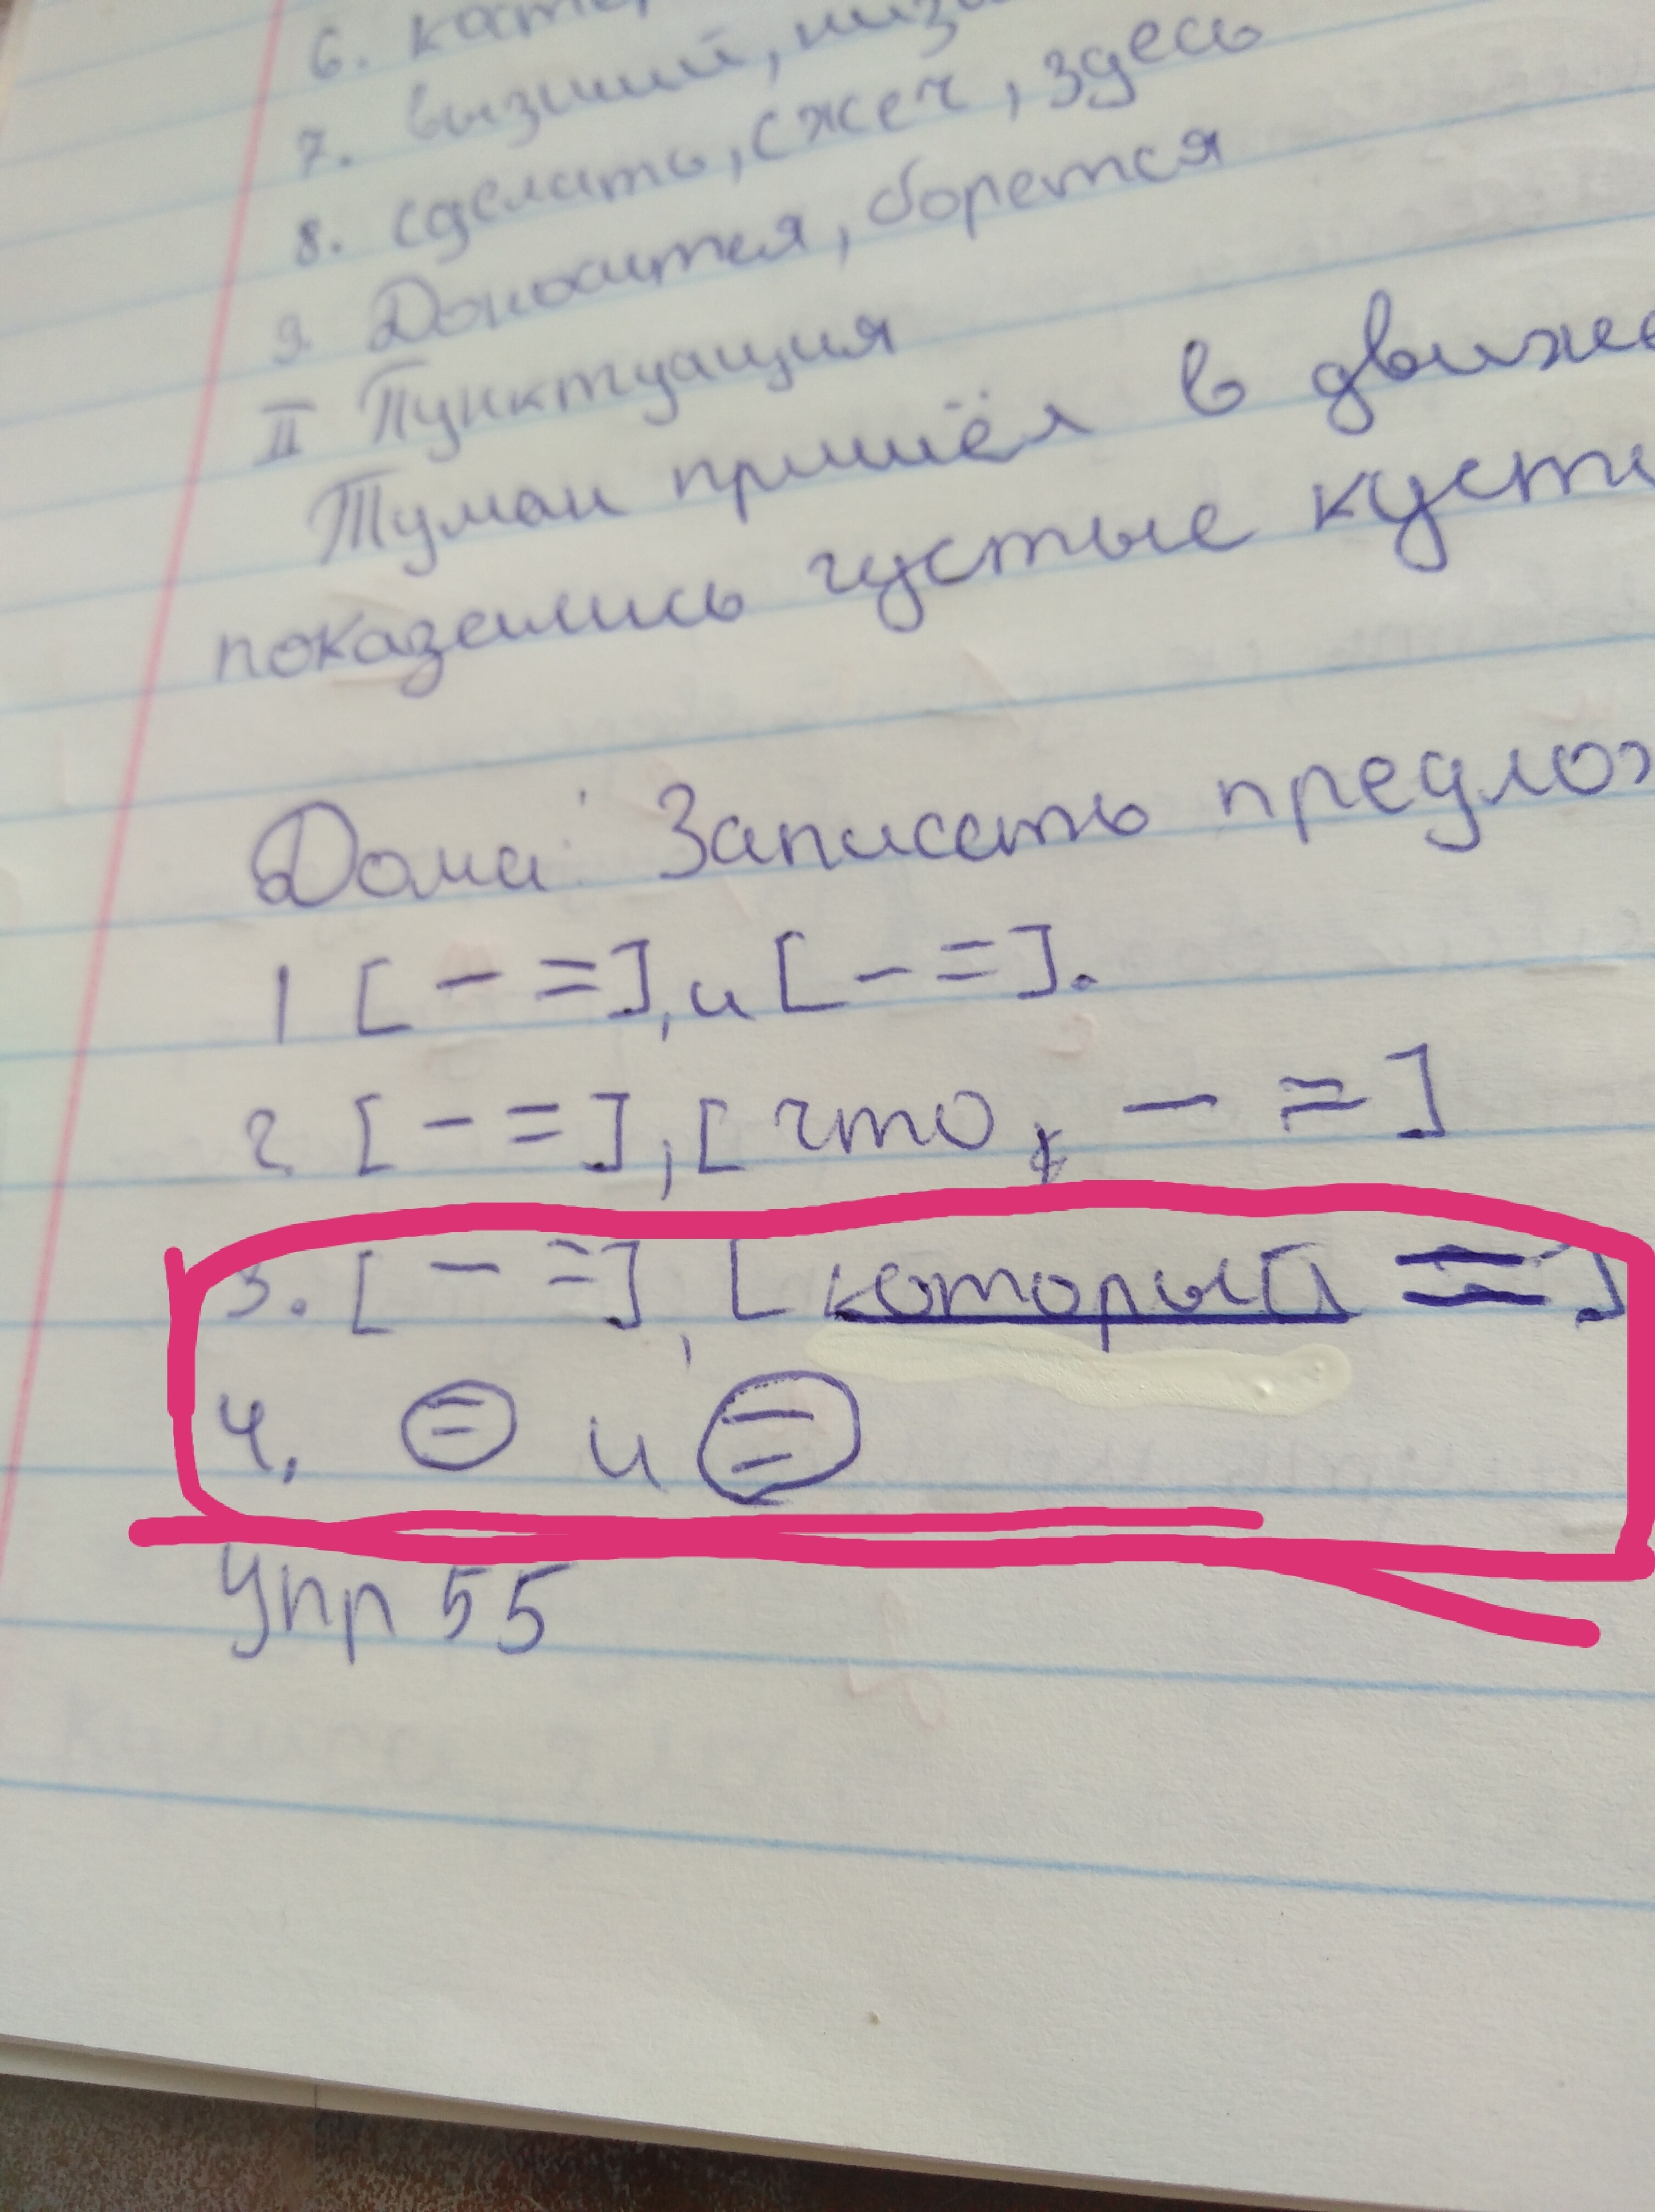 6.
7. высший,
8. сделать, сжеч, здесь
9. Доносится, борется
II Пунктуация
Туман пришёл в движе
показались густые куст
Дома: Записать предло
1 [ – =], и [ – =].
2. [ – =], [ что, – = ]
3. [ – =], [ который = ]
4. = и =
Упр 55